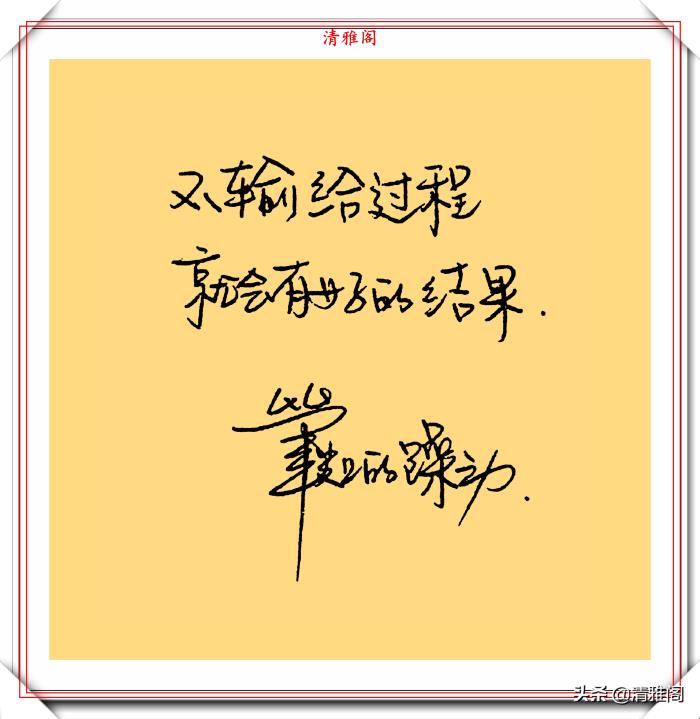 清雅阁
不输给过程
就会有好的结果.
的躁动.
头条 @清雅阁